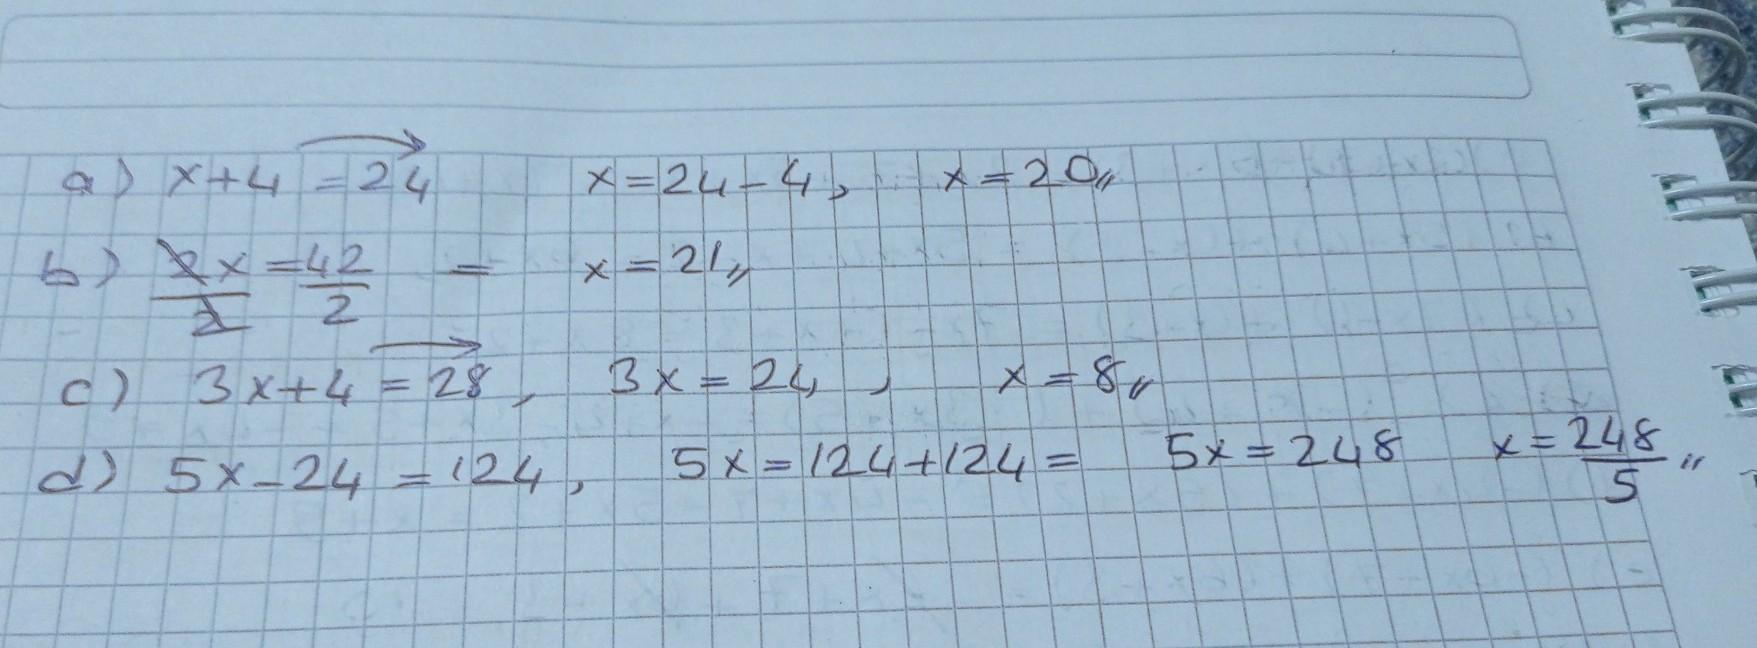 a) x+4 = 24 x = 24 - 4, x = 20,,
b) 2x/2 = 42/2 = x = 21,,
c) 3x+4 = 28, 3x = 24, x = 8,,
d) 5x-24 = 124, 5x = 124+124 = 5x = 248 x = 248/5 ,,